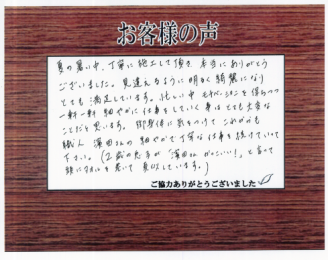 お客様の声
夏の暑い中、丁寧に施工して頂き 本当にありがとう
ございました。見違えるように明るく綺麗になり
とても満足しています。忙しい中 モチベーションを保ちつつ
一軒一軒 細やかに仕事をしていく事はとても大変な
ことだと思います。御身体に気をつけて これからも
職人 濱田さんの 細やかで丁寧な仕事を続けていって
下さい。(2歳の息子が「濱田さん かっこいい!」と言って
頭にタオルを巻いて 真似しています。)
ご協力ありがとうございました